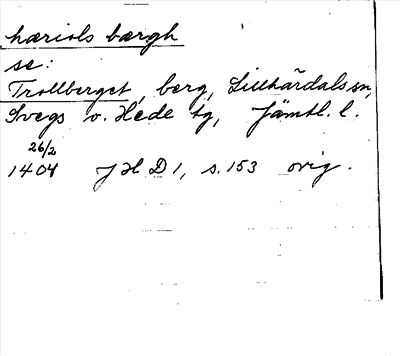 hæriols bærgh
se:
Trollberget, berg, Lillhärdals sn,
Svegs o. Hede tg, Jämtl. l.
26/2
1404 JHD 1, s. 153 orig.